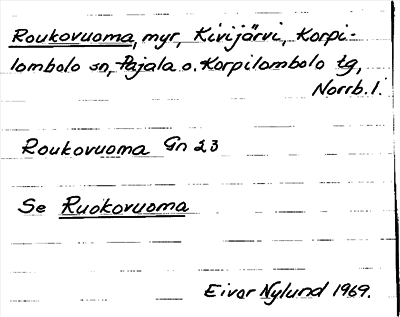 Roukovuoma, myr, Kivijärvi, Korpi-
lombolo sn, Pajala o. Korpilombolo tg,
Norrb. l.
Roukovuoma Gn 23
Se Ruokovuoma
Eivor Nylund 1969.